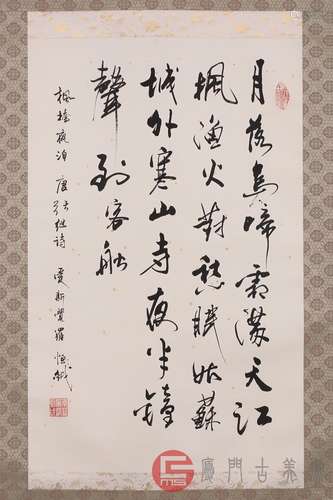 月落烏啼霜滿天江
楓漁火對愁眠姑蘇
城外寒山寺夜半鐘
聲到客船
楓橋夜泊 唐張继詩 愛新覺羅恒
廈門古美